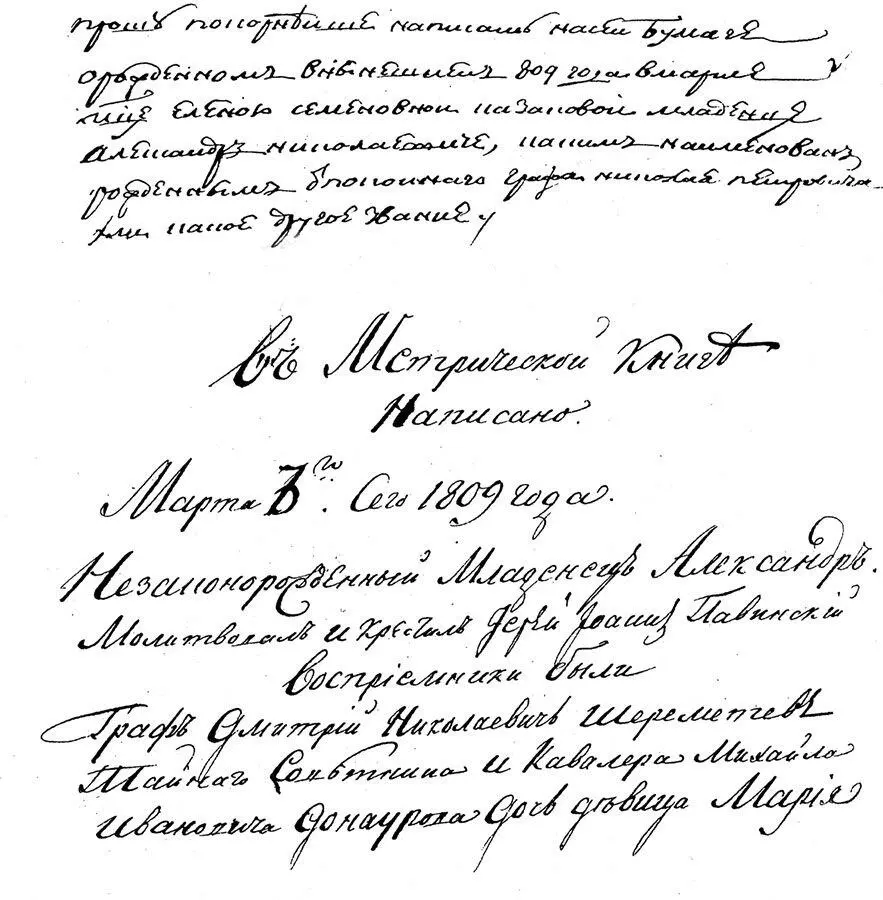 прошу покорнѣише написать насеи бумаге
орожденномъ внынешнемъ 809 году вмарте
Еленою семеновнои казаковой младенце
Александръ николаевиче, какимъ наименованъ
рожденнымъ отпокоинаго графа николая петровича
или какое другое звание
Въ Метрической Книгѣ
Написано.
Марта 7го. Сего 1809 года.
Незаконорожденный Младенецъ Александръ.
Молитвовалъ и крестилъ Іерей Іоаннъ Павинскій
Воспріемники были
Графъ Дмитрій Николаевичь Шереметевъ
Тайнаго Совѣтника и Кавалера Михайла
Ивановича Донаурова Дочь дѣвица Марія